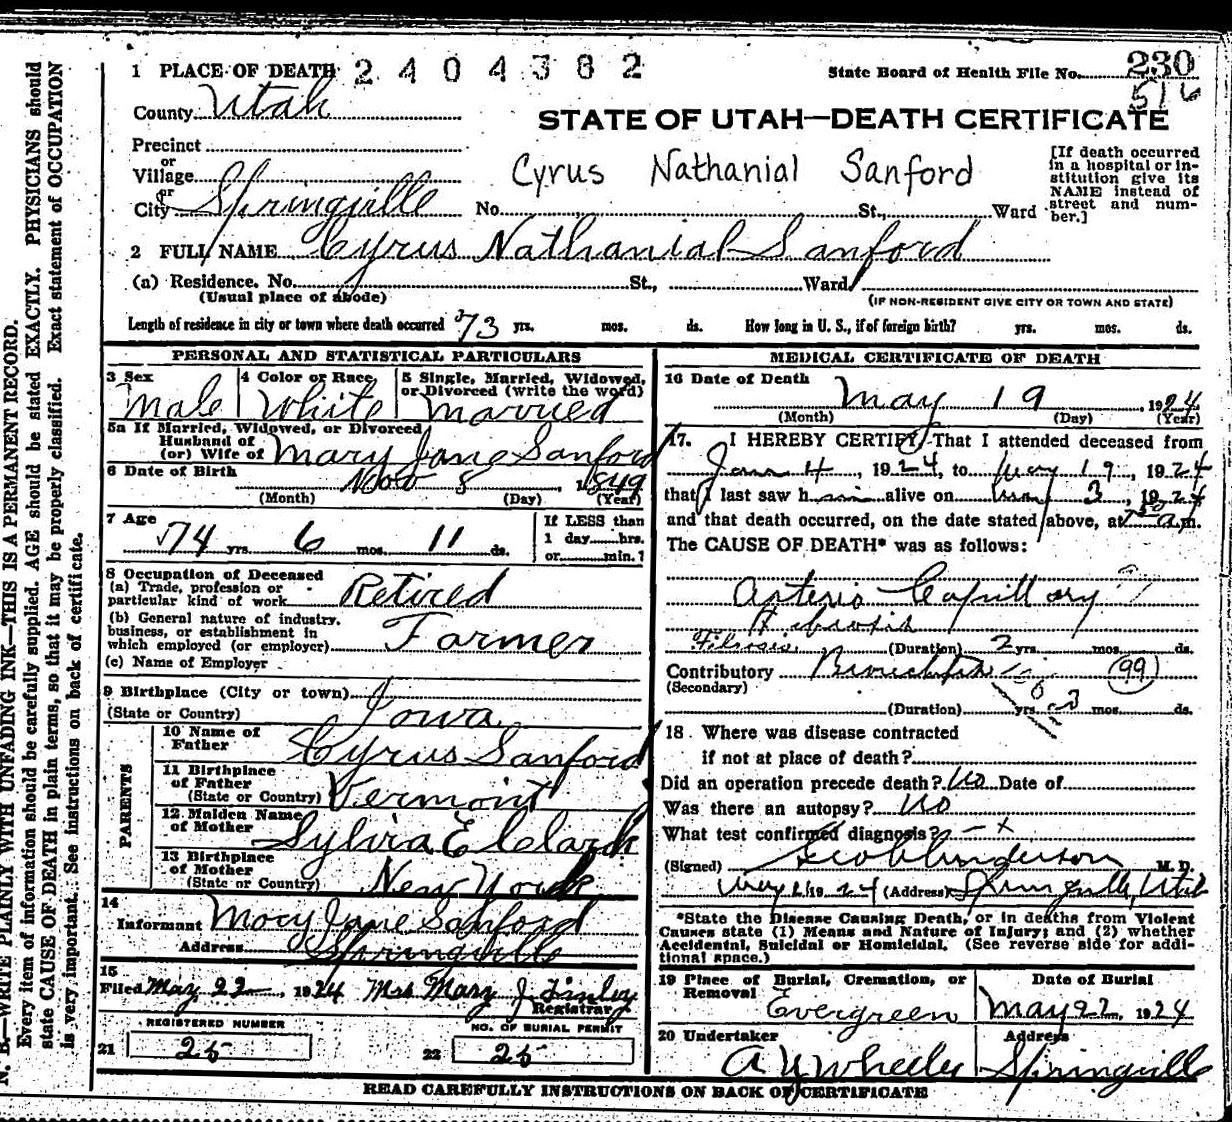 1 PLACE OF DEATH 2404382
State Board of Health File No. 230
516
County Utah
STATE OF UTAH—DEATH CERTIFICATE
Precinct
or
Village
Cyrus Nathanial Sanford
[If death occurred in a hospital or institution give its NAME instead of street and number.]
or
City Springville No. St., Ward
2 FULL NAME Cyrus Nathanial Sanford
(a) Residence. No. St., Ward
(Usual place of abode)
(IF NON-RESIDENT GIVE CITY OR TOWN AND STATE)
Length of residence in city or town where death occurred 73 yrs. mos. ds. How long in U. S., if of foreign birth? yrs. mos. ds.
PERSONAL AND STATISTICAL PARTICULARS
3 Sex 4 Color or Race 5 Single, Married, Widowed,
or Divorced (write the word)
Male White Married
5a If Married, Widowed, or Divorced
Husband of
(or) Wife of Mary Jane Sanford
6 Date of Birth Nov 8 1849
(Month) (Day) (Year)
7 Age
74 yrs. 6 mos. 11 ds.
If LESS than
1 day hrs.
or min.?
8 Occupation of Deceased
(a) Trade, profession or
particular kind of work Retired
(b) General nature of industry,
business, or establishment in
which employed (or employer) Farmer
(c) Name of Employer
9 Birthplace (City or town)
(State or Country) Iowa
PARENTS
10 Name of
Father Cyrus Sanford
11 Birthplace
of Father
(State or Country) Vermont
12 Maiden Name
of Mother Sylvia E Clark
13 Birthplace
of Mother
(State or Country) New York
14
Informant Mary Jane Sanford
Address Springville
15
Filed May 22, 1924 Mrs Mary J Finley
Registrar
REGISTERED NUMBER
21 25
NO. OF BURIAL PERMIT
22 25
MEDICAL CERTIFICATE OF DEATH
16 Date of Death
May 19, 1924
(Month) (Day) (Year)
17. I HEREBY CERTIFY, That I attended deceased from
Jan 4, 1924, to May 19, 1924
that I last saw him alive on May 3, 1924
and that death occurred, on the date stated above, at a.m.
The CAUSE OF DEATH* was as follows:
Arterio Capillary
Fibrosis
Fibrosis (Duration) 2 yrs. mos. ds.
Contributory Bronchitis 99
(Secondary)
(Duration) yrs. 3 mos. ds.
18 Where was disease contracted
if not at place of death?
Did an operation precede death? No Date of
Was there an autopsy? No
What test confirmed diagnosis?
(Signed) Geo Anderson M. D.
May 1924 (Address) Springville, Utah
*State the Disease Causing Death, or in deaths from Violent
Causes state (1) Means and Nature of Injury; and (2) whether
Accidental, Suicidal or Homicidal. (See reverse side for addi-
tional space.)
19 Place of Burial, Cremation, or
Removal Evergreen
Date of Burial
May 22, 1924
20 Undertaker
A Y Wheeler
Address
Springville
READ CAREFULLY INSTRUCTIONS ON BACK OF CERTIFICATE
N. B.—WRITE PLAINLY WITH UNFADING INK—THIS IS A PERMANENT RECORD.
Every item of information should be carefully supplied. AGE should be stated EXACTLY. PHYSICIANS should
state CAUSE OF DEATH in plain terms, so that it may be properly classified. Exact statement of OCCUPATION
is very important. See instructions on back of certificate.